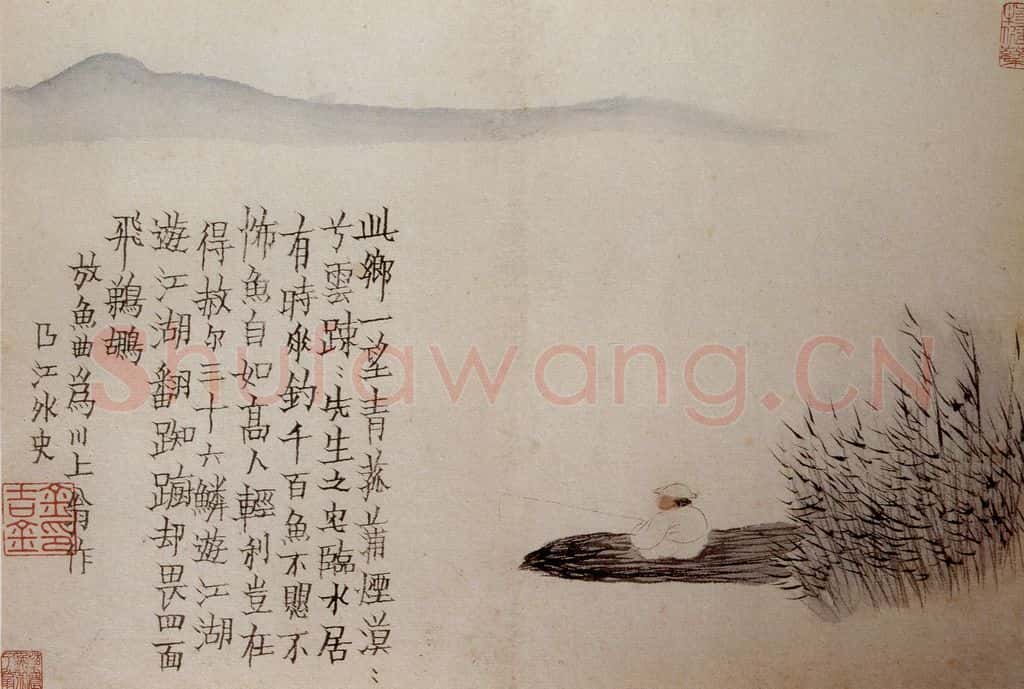 此鄉一望青菰蒲煙漠〻
兮雲踈〻先生之宅臨水居
有時垂釣千百魚不愳不
怖魚自如高人輕利豈在
得赦尔三十六鱗遊江湖
遊江湖翻踟躕却畏四面
飛鵜鶘
放魚曲為川上翁作
曲江外史
金吉金印
Shufawang.CN